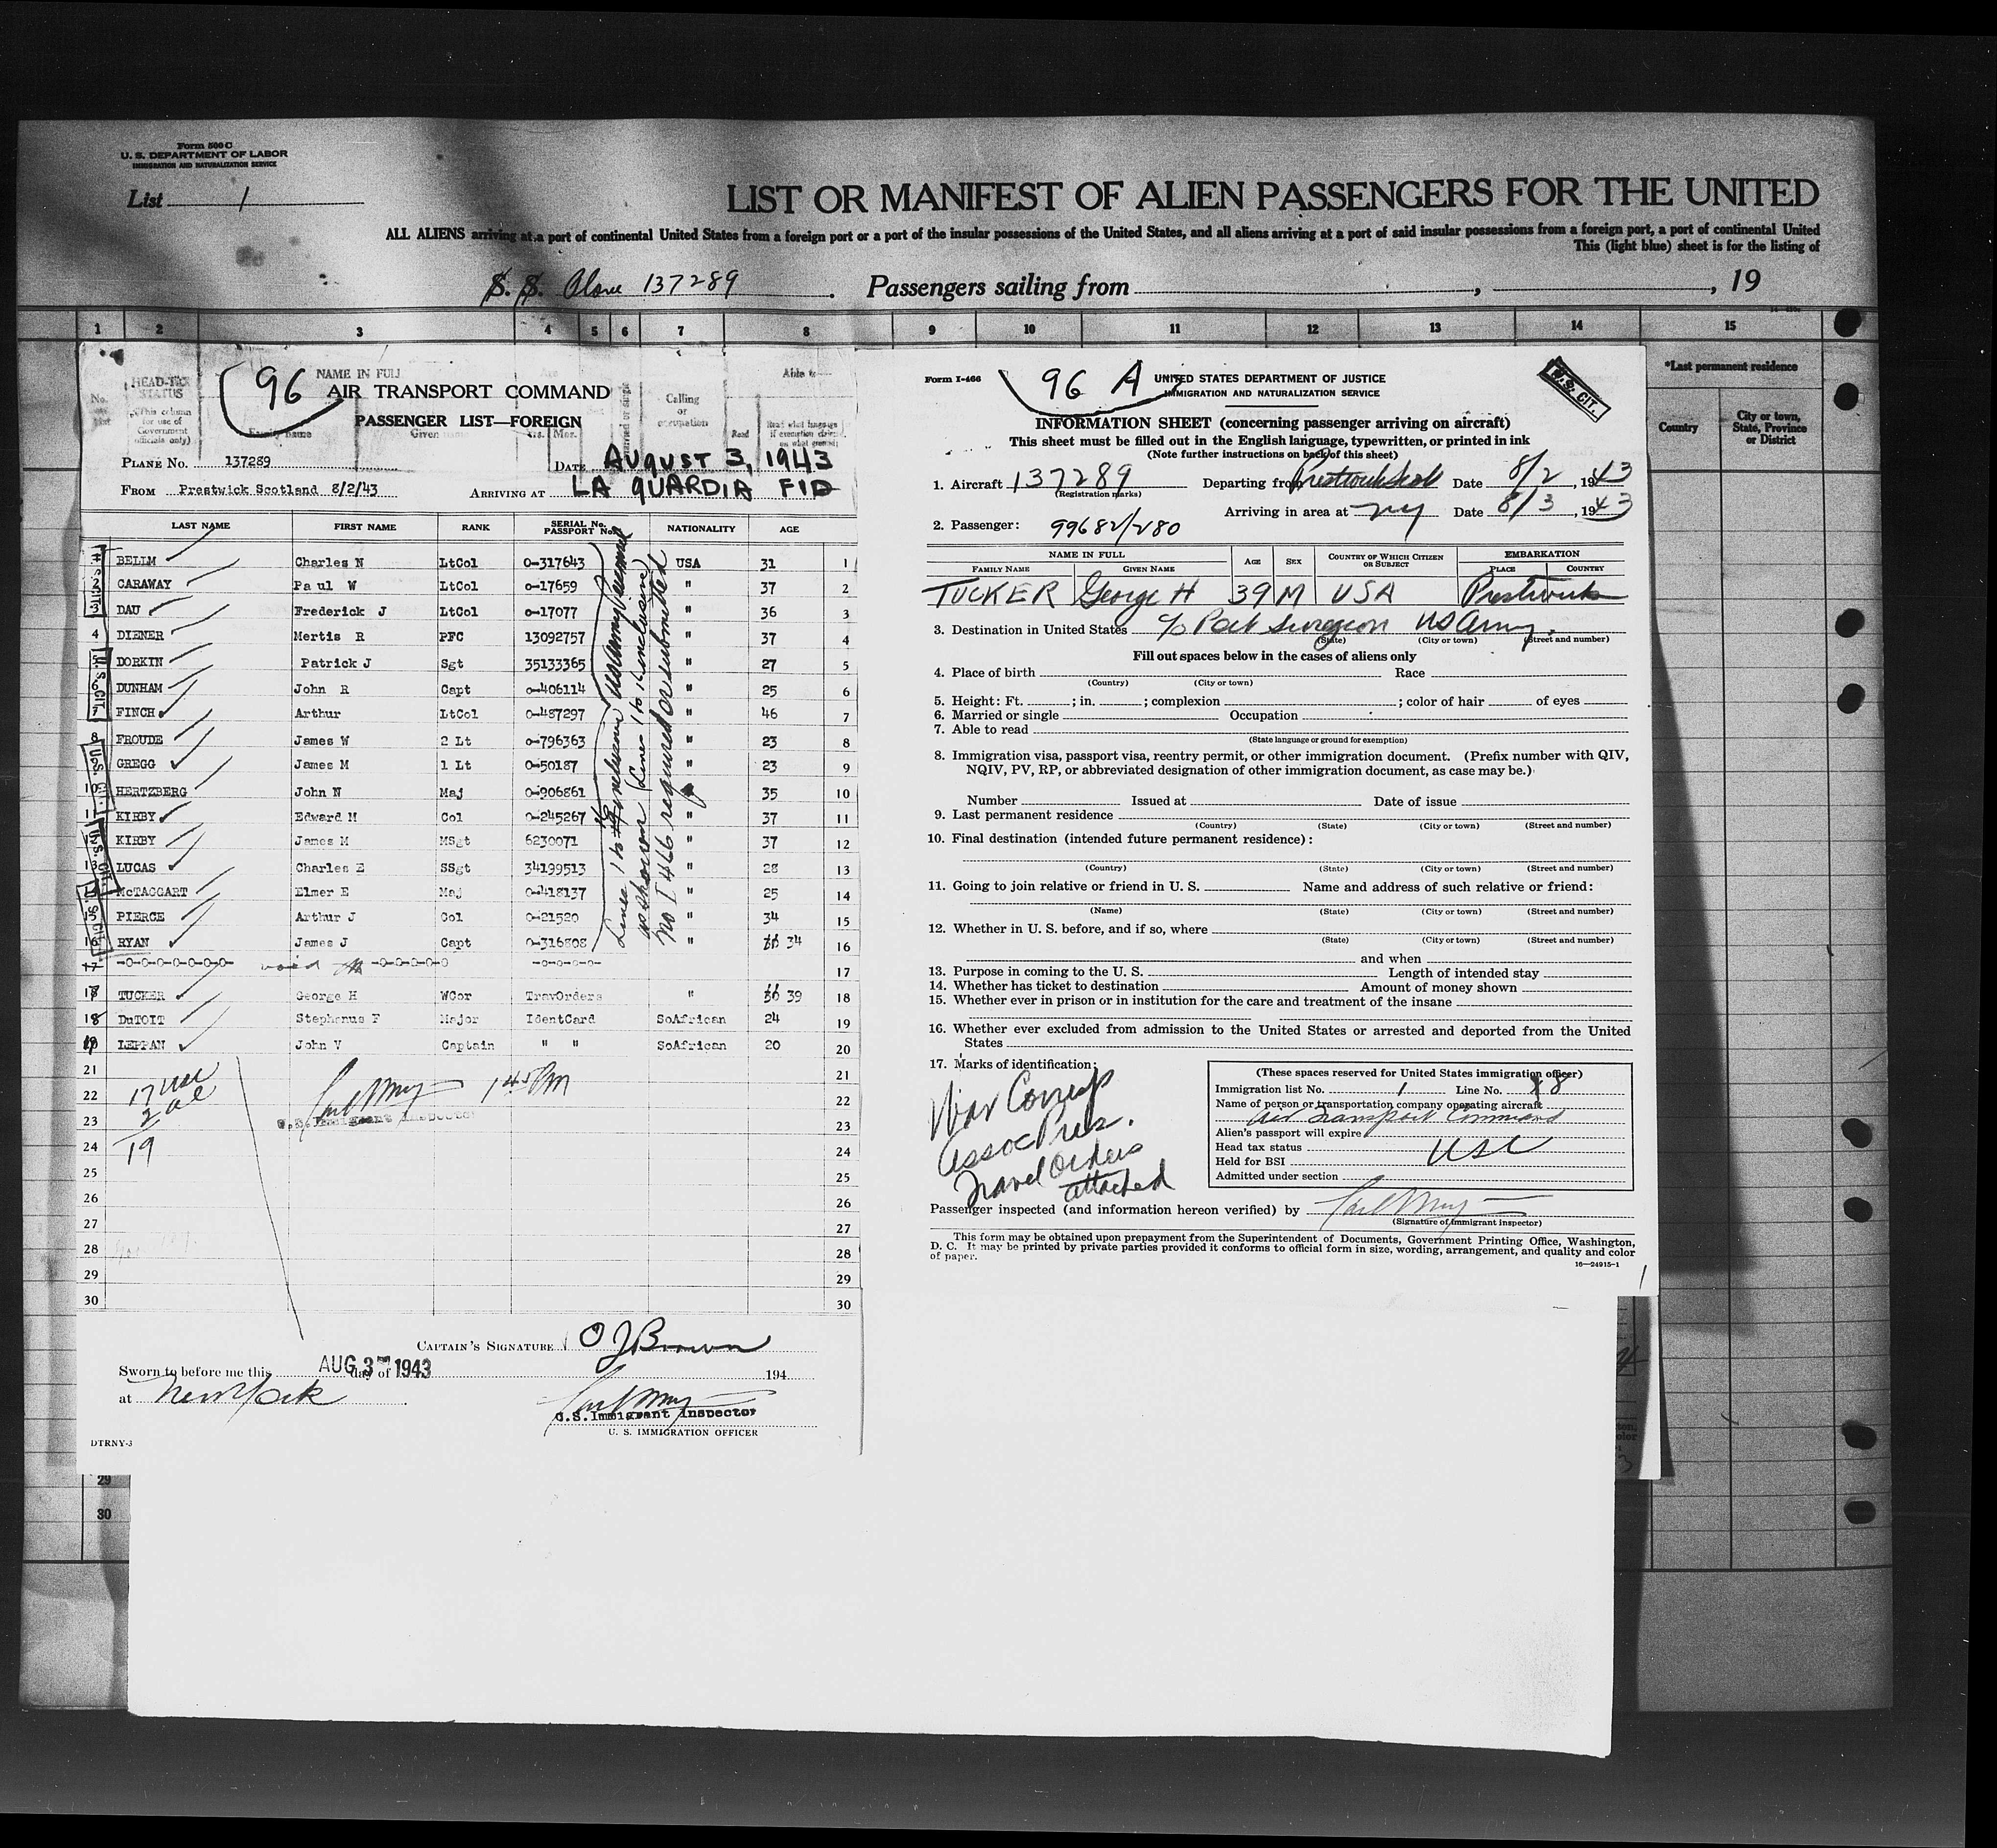 Form 500 C
U. S. DEPARTMENT OF LABOR
IMMIGRATION AND NATURALIZATION SERVICE
List 1
LIST OR MANIFEST OF ALIEN PASSENGERS FOR THE UNITED
ALL ALIENS arriving at a port of continental United States from a foreign port or a port of the insular possessions of the United States, and all aliens arriving at a port of said insular possessions from a foreign port, a port of continental United
This (light blue) sheet is for the listing of
S. S. Plane 137289 . Passengers sailing from , , 19
1 2 3 4 5 6 7 8 9 10 11 12 13 14 15
*Last permanent residence
Country
City or town, State, Province or District
HEAD-TAX STATUS
(This column for use of Government officials only)
NAME IN FULL
Family name
Given
Calling or occupation
Able to
Read
Read what language
96
AIR TRANSPORT COMMAND
PASSENGER LIST—FOREIGN
PLANE NO. 137289
DATE AUGUST 3, 1943
FROM Prestwick Scotland 8/2/43
ARRIVING AT LA GUARDIA FLD
LAST NAME FIRST NAME RANK SERIAL No. PASSPORT No. NATIONALITY AGE
1 BELLM Charles N LtCol 0-317643 USA 31 1
2 CARAWAY Paul W LtCol o-17659 " 37 2
3 DAU Frederick J LtCol o-17077 " 36 3
4 DIENER Mertis R PFC 13092757 " 37 4
5 DORKIN Patrick J Sgt 35133365 " 27 5
6 DUNHAM John R Capt o-406114 " 25 6
7 FINCH Arthur LtCol 0-487297 " 46 7
8 FROUDE James W 2 Lt o-796363 " 23 8
9 GREGG James M 1 Lt 0-50187 " 23 9
10 HERTZBERG John N Maj 0-906861 " 35 10
11 KIRBY Edward M Col 0-245267 " 37 11
12 KIRBY James M MSgt 6230071 " 37 12
13 LUCAS Charles E SSgt 34199513 " 28 13
14 McTAGGART Elmer E Maj 0-418137 " 25 14
15 PIERCE Arthur J Col 0-21520 " 34 15
16 RYAN James J Capt 0-316808 " 34 16
17 -0-0-0-0-0-0-0- void -0-0-0-0-0 -0-0-0-0- 17
TUCKER George H WCor TravOrders " 39 18
18 DuTOIT Stephanus F Major IdentCard SoAfrican 24 19
19 LEPPAN John V Captain " " SoAfrican 20 20
U.S. CIT.
Lines 1 to 16 inclusive US Army Personnel
as shown on Lines 1 to 16 inclusive
No I 466 required or submitted
21 21
22 22
23 23
24 24
25 25
26 26
27 27
28 28
29 29
30 30
17 USC
2 al
19
1 45 PM
U.S. Immigrant Inspector
CAPTAIN'S SIGNATURE O J Brown
Sworn to before me this AUG 3 1943 day of 194
at New York
U.S. Immigrant Inspector
U. S. IMMIGRATION OFFICER
DTRNY-3
29
30
Form I-466
96 A
UNITED STATES DEPARTMENT OF JUSTICE
IMMIGRATION AND NATURALIZATION SERVICE
U.S. CIT.
INFORMATION SHEET (concerning passenger arriving on aircraft)
This sheet must be filled out in the English language, typewritten, or printed in ink
(Note further instructions on back of this sheet)
1. Aircraft 137289 Departing from Prestwick Scot Date 8/2, 1943
(Registration marks)
Arriving in area at NY Date 8/3, 1943
2. Passenger: 99682/280
NAME IN FULL AGE SEX COUNTRY OF WHICH CITIZEN OR SUBJECT EMBARKATION
FAMILY NAME GIVEN NAME PLACE COUNTRY
TUCKER George H 39 M USA Prestwick
3. Destination in United States c/o Port Surgeon US Army.
(State) (City or town) (Street and number)
Fill out spaces below in the cases of aliens only
4. Place of birth Race
(Country) (City or town)
5. Height: Ft. ; in. ; complexion ; color of hair of eyes
6. Married or single Occupation
7. Able to read
(State language or ground for exemption)
8. Immigration visa, passport visa, reentry permit, or other immigration document. (Prefix number with QIV,
NQIV, PV, RP, or abbreviated designation of other immigration document, as case may be.)
Number Issued at Date of issue
9. Last permanent residence
(Country) (State) (City or town) (Street and number)
10. Final destination (intended future permanent residence):
(Country) (State) (City or town) (Street and number)
11. Going to join relative or friend in U. S. Name and address of such relative or friend:
(Name) (State) (City or town) (Street and number)
12. Whether in U. S. before, and if so, where
(State) (City or town) (Street and number)
and when
13. Purpose in coming to the U. S. Length of intended stay
14. Whether has ticket to destination Amount of money shown
15. Whether ever in prison or in institution for the care and treatment of the insane
16. Whether ever excluded from admission to the United States or arrested and deported from the United
States
17. Marks of identification:
War Corresp
Assoc Press.
Travel Orders
attached
(These spaces reserved for United States immigration officer)
Immigration list No. 1 Line No. 18
Name of person or transportation company operating aircraft
Air Transport Command
Alien's passport will expire
Head tax status USC
Held for BSI
Admitted under section
Passenger inspected (and information hereon verified) by
(Signature of immigrant inspector)
This form may be obtained upon prepayment from the Superintendent of Documents, Government Printing Office, Washington,
D. C. It may be printed by private parties provided it conforms to official form in size, wording, arrangement, and quality and color
of paper.
16—24915-1